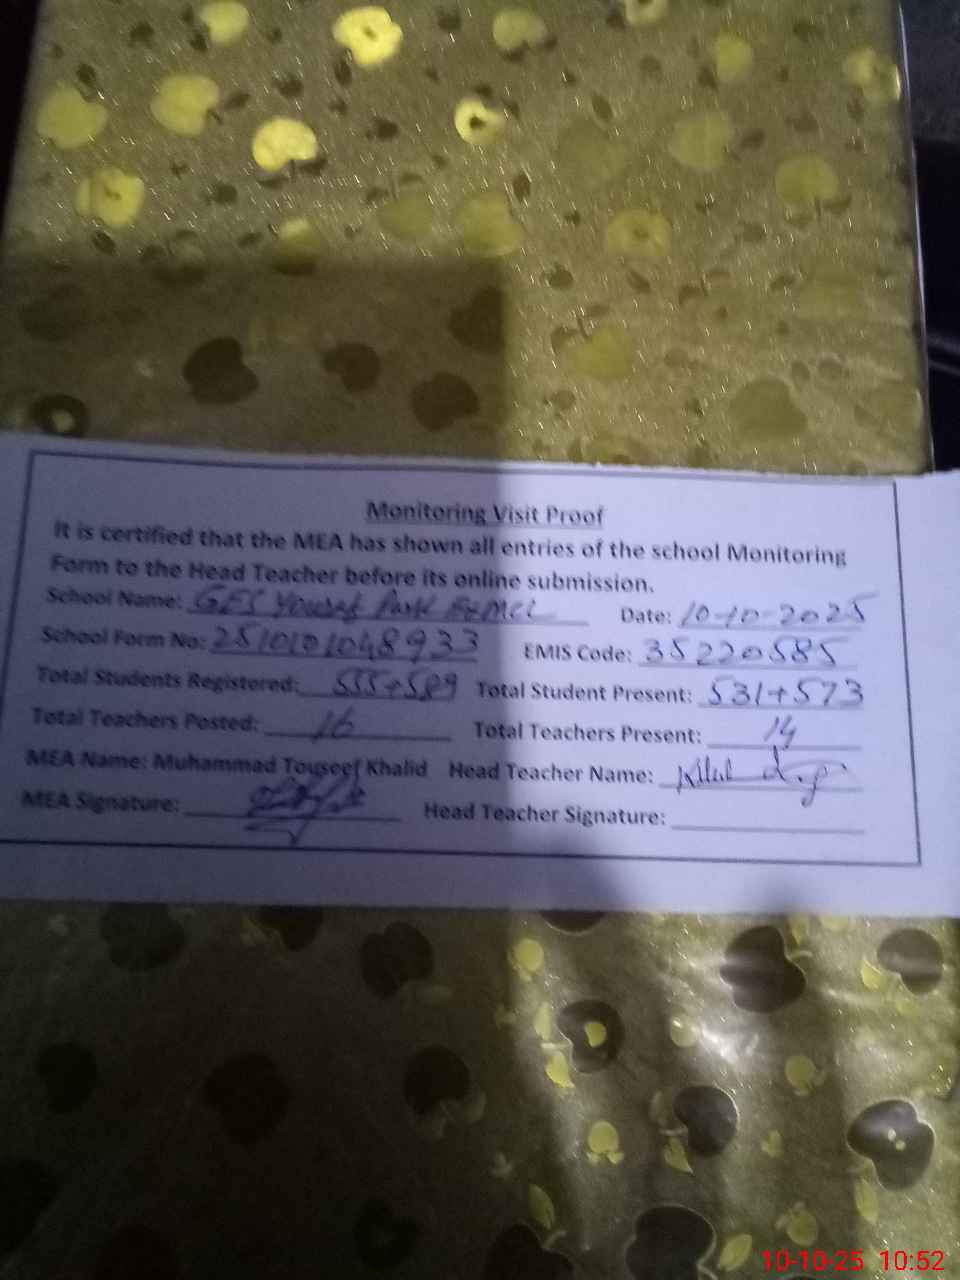 Monitoring Visit Proof
It is certified that the MEA has shown all entries of the school Monitoring
Form to the Head Teacher before its online submission.
School Name: GES Yousaf Park Date: 10-10-2025
School Form No: 2510101048933 EMIS Code: 35220585
Total Students Registered: 555+589 Total Student Present: 531+573
Total Teachers Posted: 16 Total Teachers Present: 14
MEA Name: Muhammad Touseef Khalid Head Teacher Name:
MEA Signature: Head Teacher Signature:
10-10-25 10:52